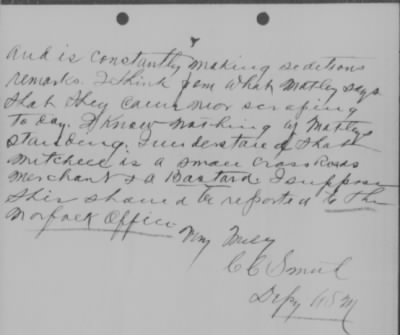 and is constantly making seditious
remarks. I think from what Matley says
that they came near scraping
to day. I know nothing of Matleys
standing. I understand that
Mitchell is a small cross Roads
merchant & a Bastard. I suppose
this should be reported to the
Norfolk Office
Very Truly
C C Smith
Depy U S M